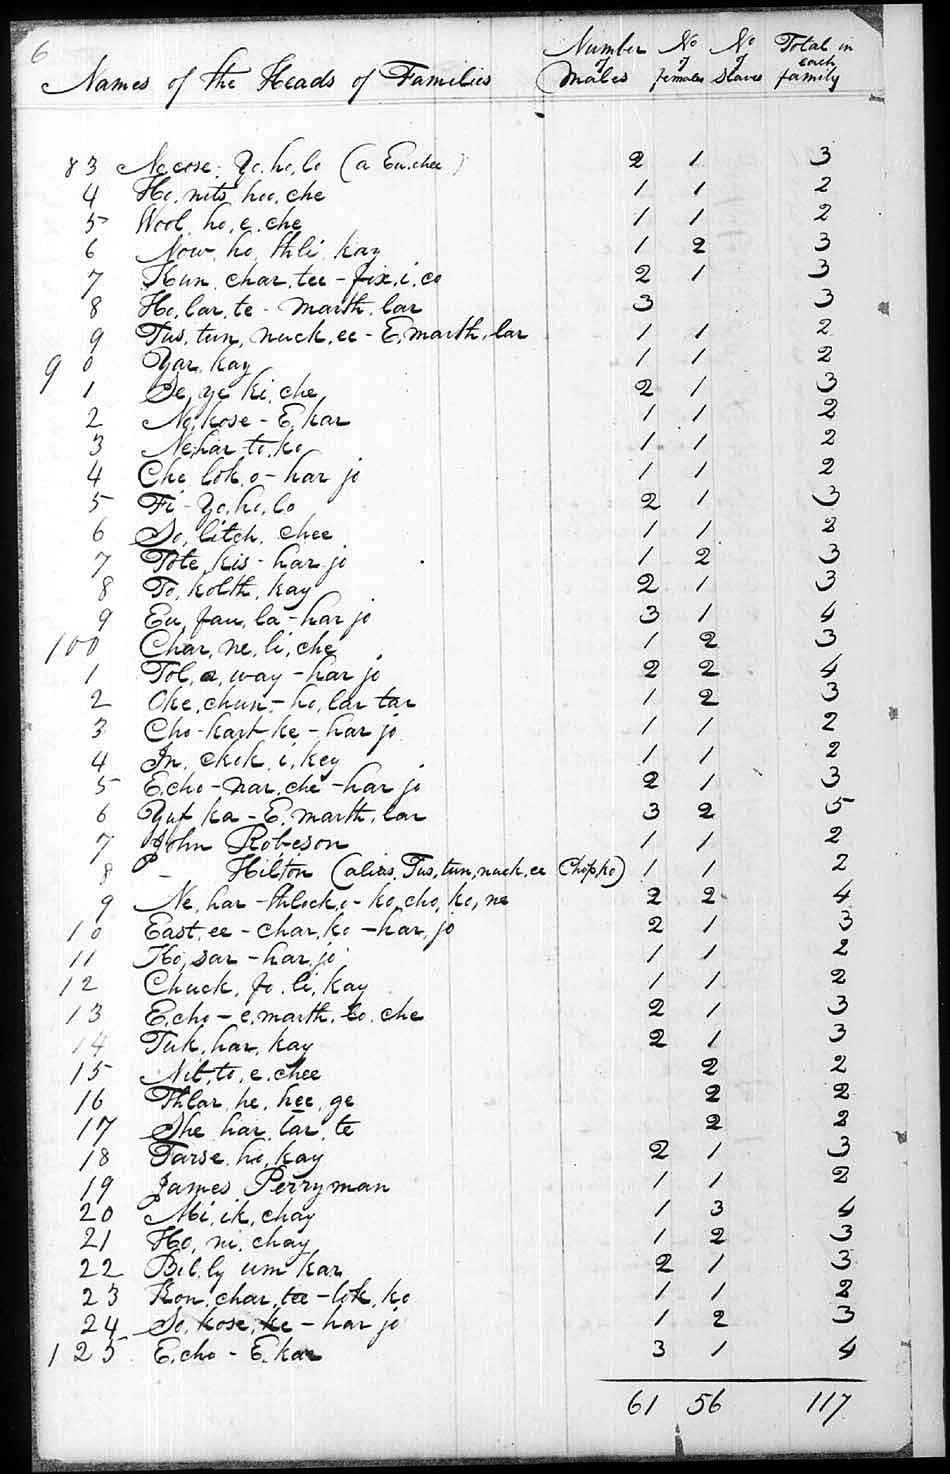 6
Names of the Heads of Families Number of Males No of females No of Slaves Total in each family
83 Necose. Yo. ho. lo (a Eu.chee) 2 1 3
4 Ho. nits. hoo. che 1 1 2
5 Wool. ho. e. che 1 1 2
6 Now. ho. thli. kay 1 2 3
7 Kun. char. tee - fix. i. co 2 1 3
8 Ho. lar. te - marth. lar 3 3
9 Tus. tun. nuck. ee - E. marth. lar 1 1 2
90 Yar. kay 1 1 2
1 Se. ye ki. che 2 1 3
2 No. kose - E. kar 1 1 2
3 Ne har - to. ko 1 1 2
4 Che lok. o - har jo 1 1 2
5 Fi - Yo. ho. lo 2 1 3
6 So. litch. chee 1 1 2
7 Tote. kis - har. jo 1 2 3
8 To. kolth. kay 2 1 3
9 Eu. fau. la - har jo 3 1 4
100 Char. ne. li. che 1 2 3
1 Tol. a. way - har jo 2 2 4
2 Oke. chun - ho. lar tar 1 2 3
3 Cho - kart ke - har jo 1 1 2
4 In. chok. i. key 1 1 2
5 E.cho - nar. che - har jo 2 1 3
6 Yuf ka - E. marth. lar 3 2 5
7 John Robeson 1 1 2
8 - Hilton (alias. Tus. tun. nuck. ee Chop. ko) 1 1 2
9 Ne. har - thlock. o - ko. cho. ko. ne 2 2 4
10 East. ee - char. ko - har. jo 2 1 3
11 Ko. sar - har. jo 1 1 2
12 Chuck. fo. li. kay 1 1 2
13 E.cho - e. marth. lo. che 2 1 3
14 Tuk. har. kay 2 1 3
15 Nit. to. e. chee 2 2
16 Thlar. he. hee. ge 2 2
17 She har. lar. te 2 2
18 Tarse. ho. kay 2 1 3
19 James Perryman 1 1 2
20 Mi. ik. chay 1 3 4
21 Ho. ni. chay 1 2 3
22 Bil. ly um kar 2 1 3
23 Kon. char. tee - lok. ko 1 1 2
24 So. kose. ke - har jo 1 2 3
125 E.cho - E. kar 3 1 4
61 56 117